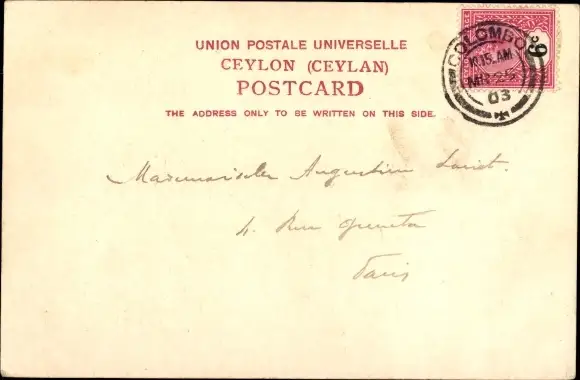 UNION POSTALE UNIVERSELLE
CEYLON (CEYLAN)
POSTCARD
THE ADDRESS ONLY TO BE WRITTEN ON THIS SIDE.
COLOMBO
10.15 AM
MR 25
03
6c
Augustine
4. Rue
Paris